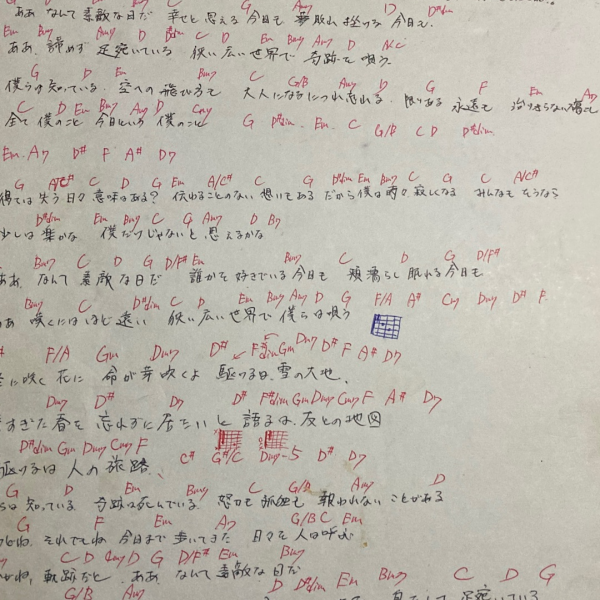 G Am7 D D#dim
ああ なんて素敵な日だ 幸せと思える今日も 夢敗れ挫ける 今日も
Em Bm7 Am7 D Bdim C D Em Bm7 Am7 D N.C
ああ 諦めず 足宛いている 狭い広い世界で 奇跡を唄う
G D Em Bm7 C G/B Am7 D G F Em A7
僕らは知っている 空への飛び方も 大人になるにつれ忘れる 限りある 永遠も 治りきらない傷も
C D Em Bm7 Am7 D Cm7 G D#dim Em C G/B C D D#dim
全て僕のこと 今日という 僕のこと
Em A7 D# F A# D7
G A/C# C D G Em A/C# C G D#dim Em Bm7 C G C A/C#
得ては失う日々 意味はある? 伝わることのない 想いもある だから僕は時々 寂しくなる みんなもそうなら
D#dim Em Bm7 C G Am7 D B7
少しは楽かな 僕だけじゃないと思えるかな
Bm7 C D G D/F# Em Bm7 C D G D/F#
ああ なんて 素敵な日だ 誰かを好きでいる 今日も 頬濡らし 眠れる今日も
Bm7 C D#dim C D Em Bm7 Am7 D G F/A A# Cm7 Dm7 D# F
咲くにはほど遠い 狭い広い世界で 僕らは唄う
F/A Gm Dm7 D# F#dim Gm Dm7 D# F A# D7
に咲く花に 命が芽吹くよ 駆けるは 雪の大地、
Dm7 D# D7 D# F#dim Gm Dm7 Cm7 F A# D7
すぎた春を 忘れずに居たい と 語るは 友との地図
D#dim Gm Dm7 Cm7 F C# G#/C Dm7-5 D# D7
駆けるは 人の旅路、
G D Em Bm7 C G/B Am7 D
らは知っている 奇跡は死んでいる 努力も孤独も 報われない ことがある
G F Em A7 G/B C Em
だけどね それでもね 今日まで歩いてきた 日々を人は呼ぶ
C D Am7 D G D/F# Em Bm7
がね、軌跡だと ああ なんて素敵な日だ
G/B Am7 D D#dim Em Bm7 C D G
足宛いている